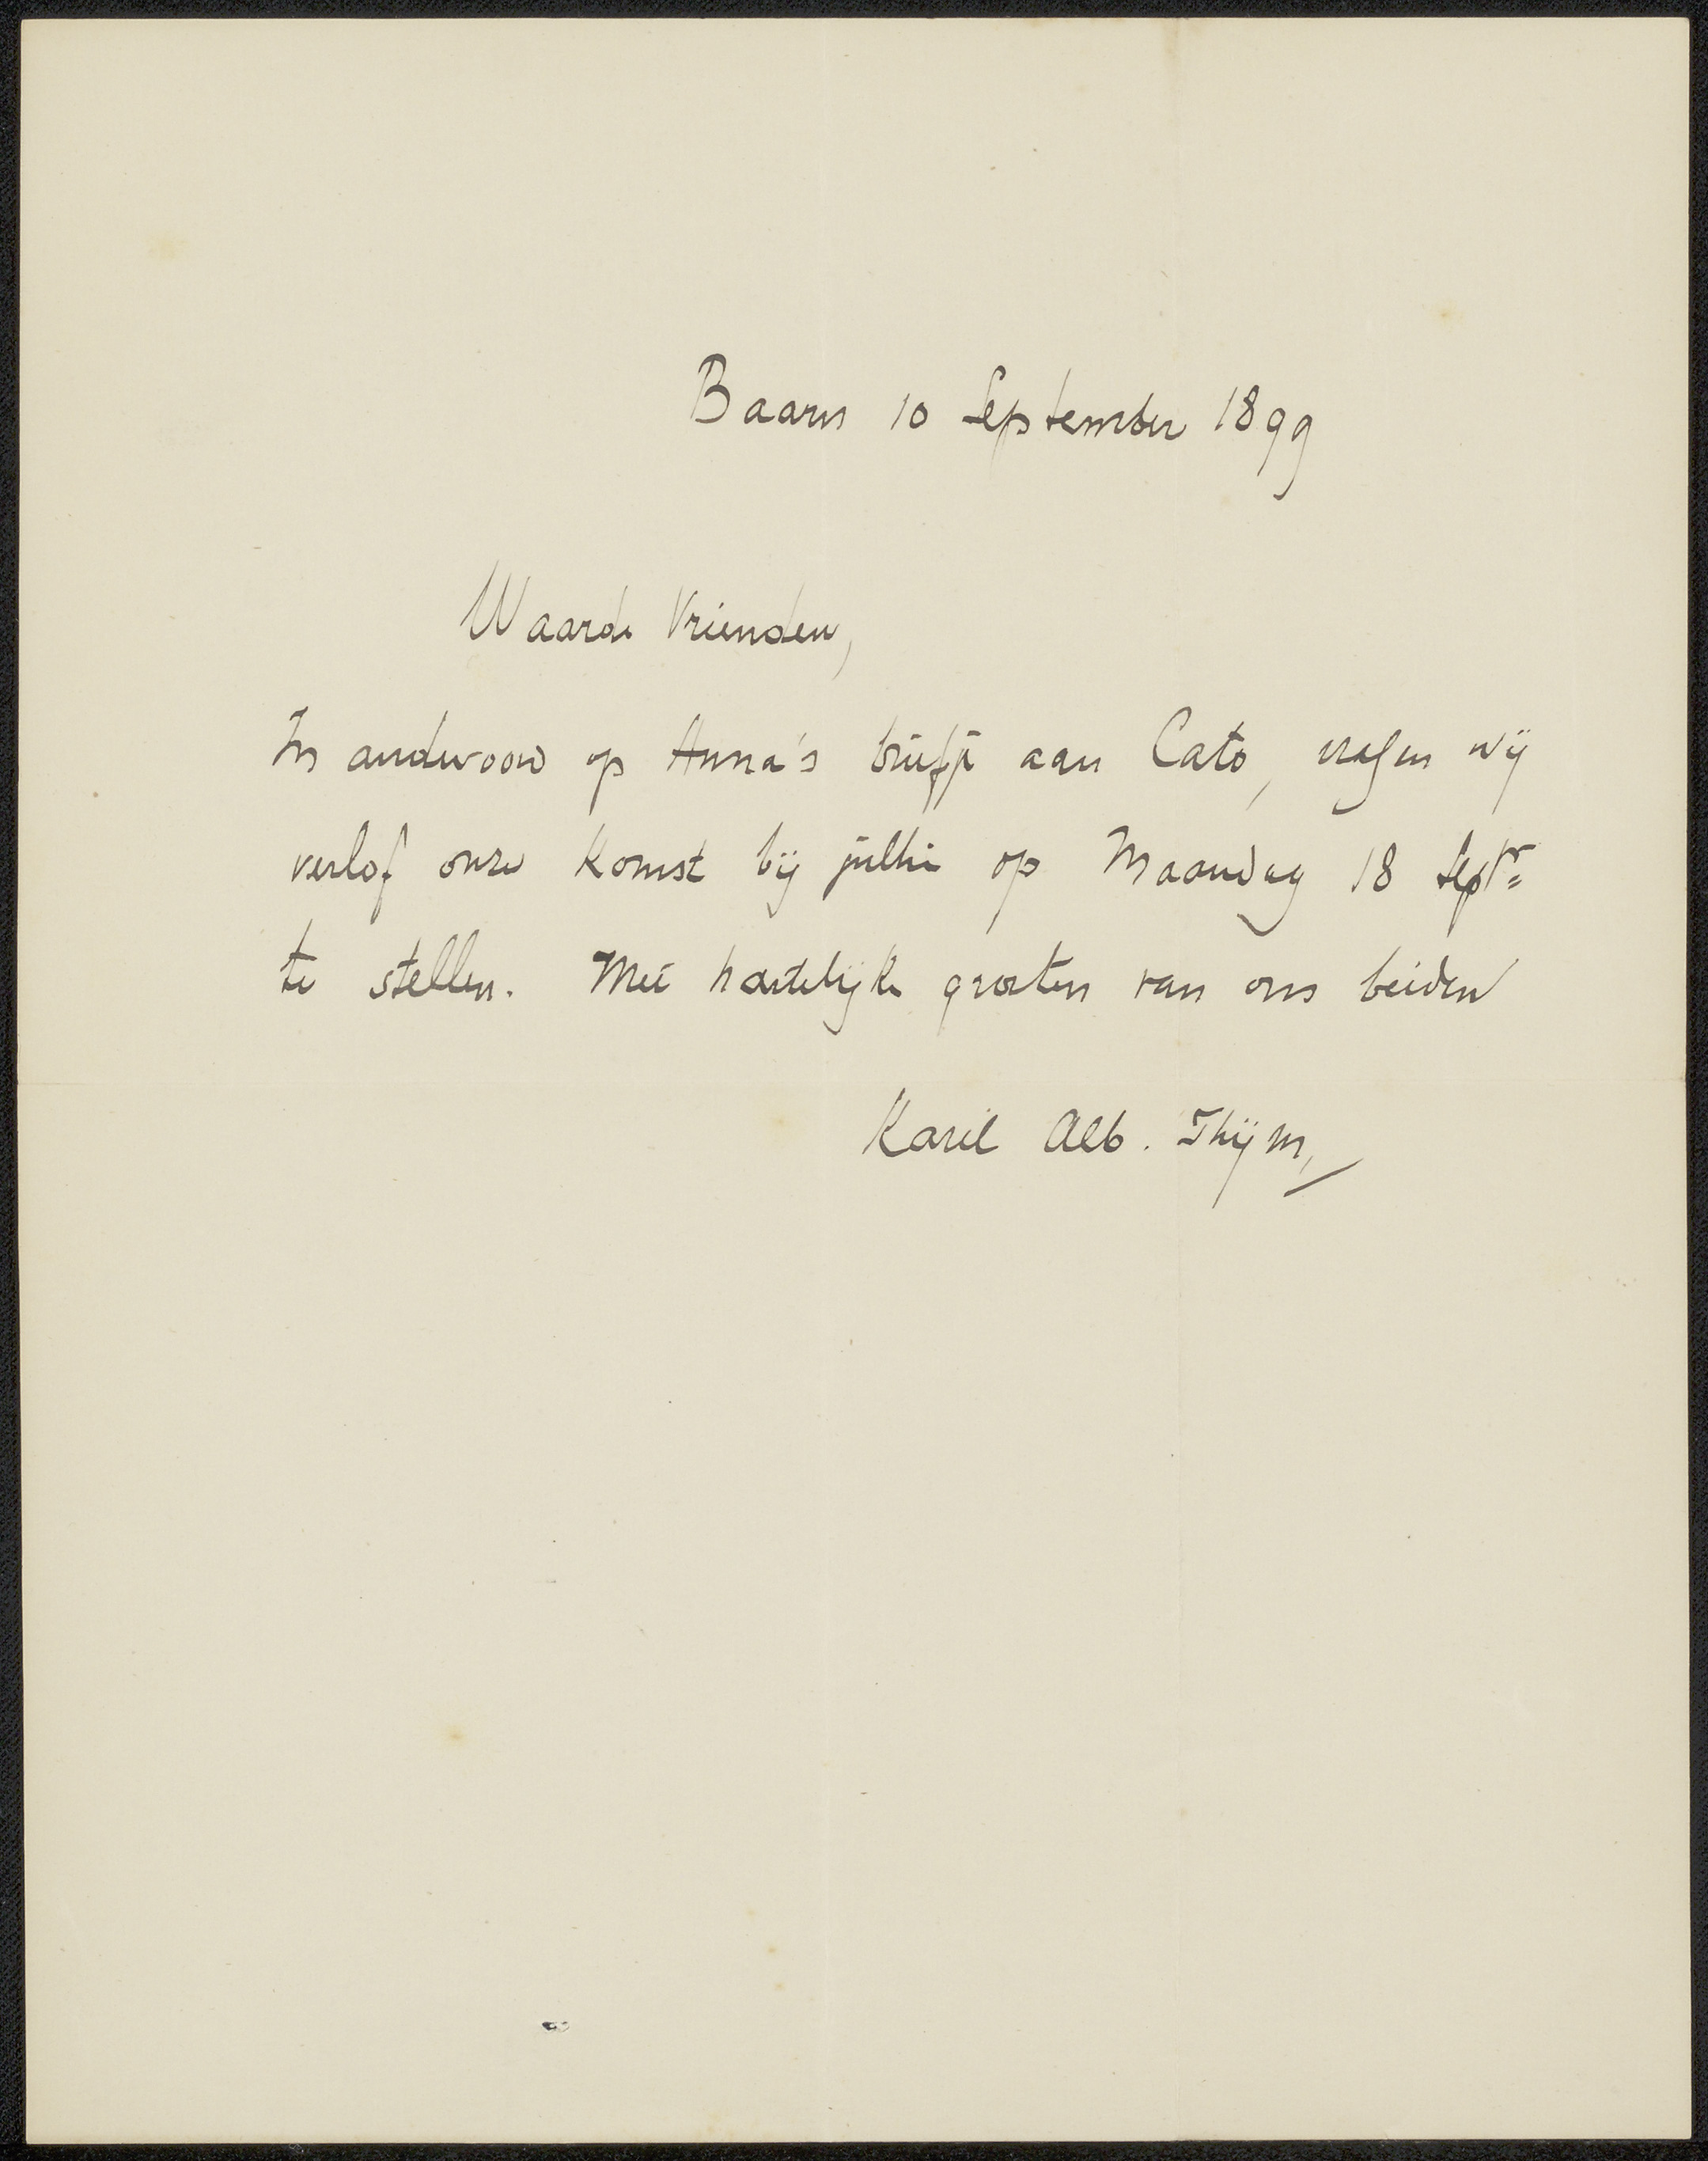 Baarn 10 September 1899
Waarde Vrienden,
In andwoord op Anna's briefje aan Cato, vragen wij
verlof onze komst bij jullie op Maandag 18 Septr
te stellen. Met hartelijke groeten van ons beiden
Karel Alb. Thijm,